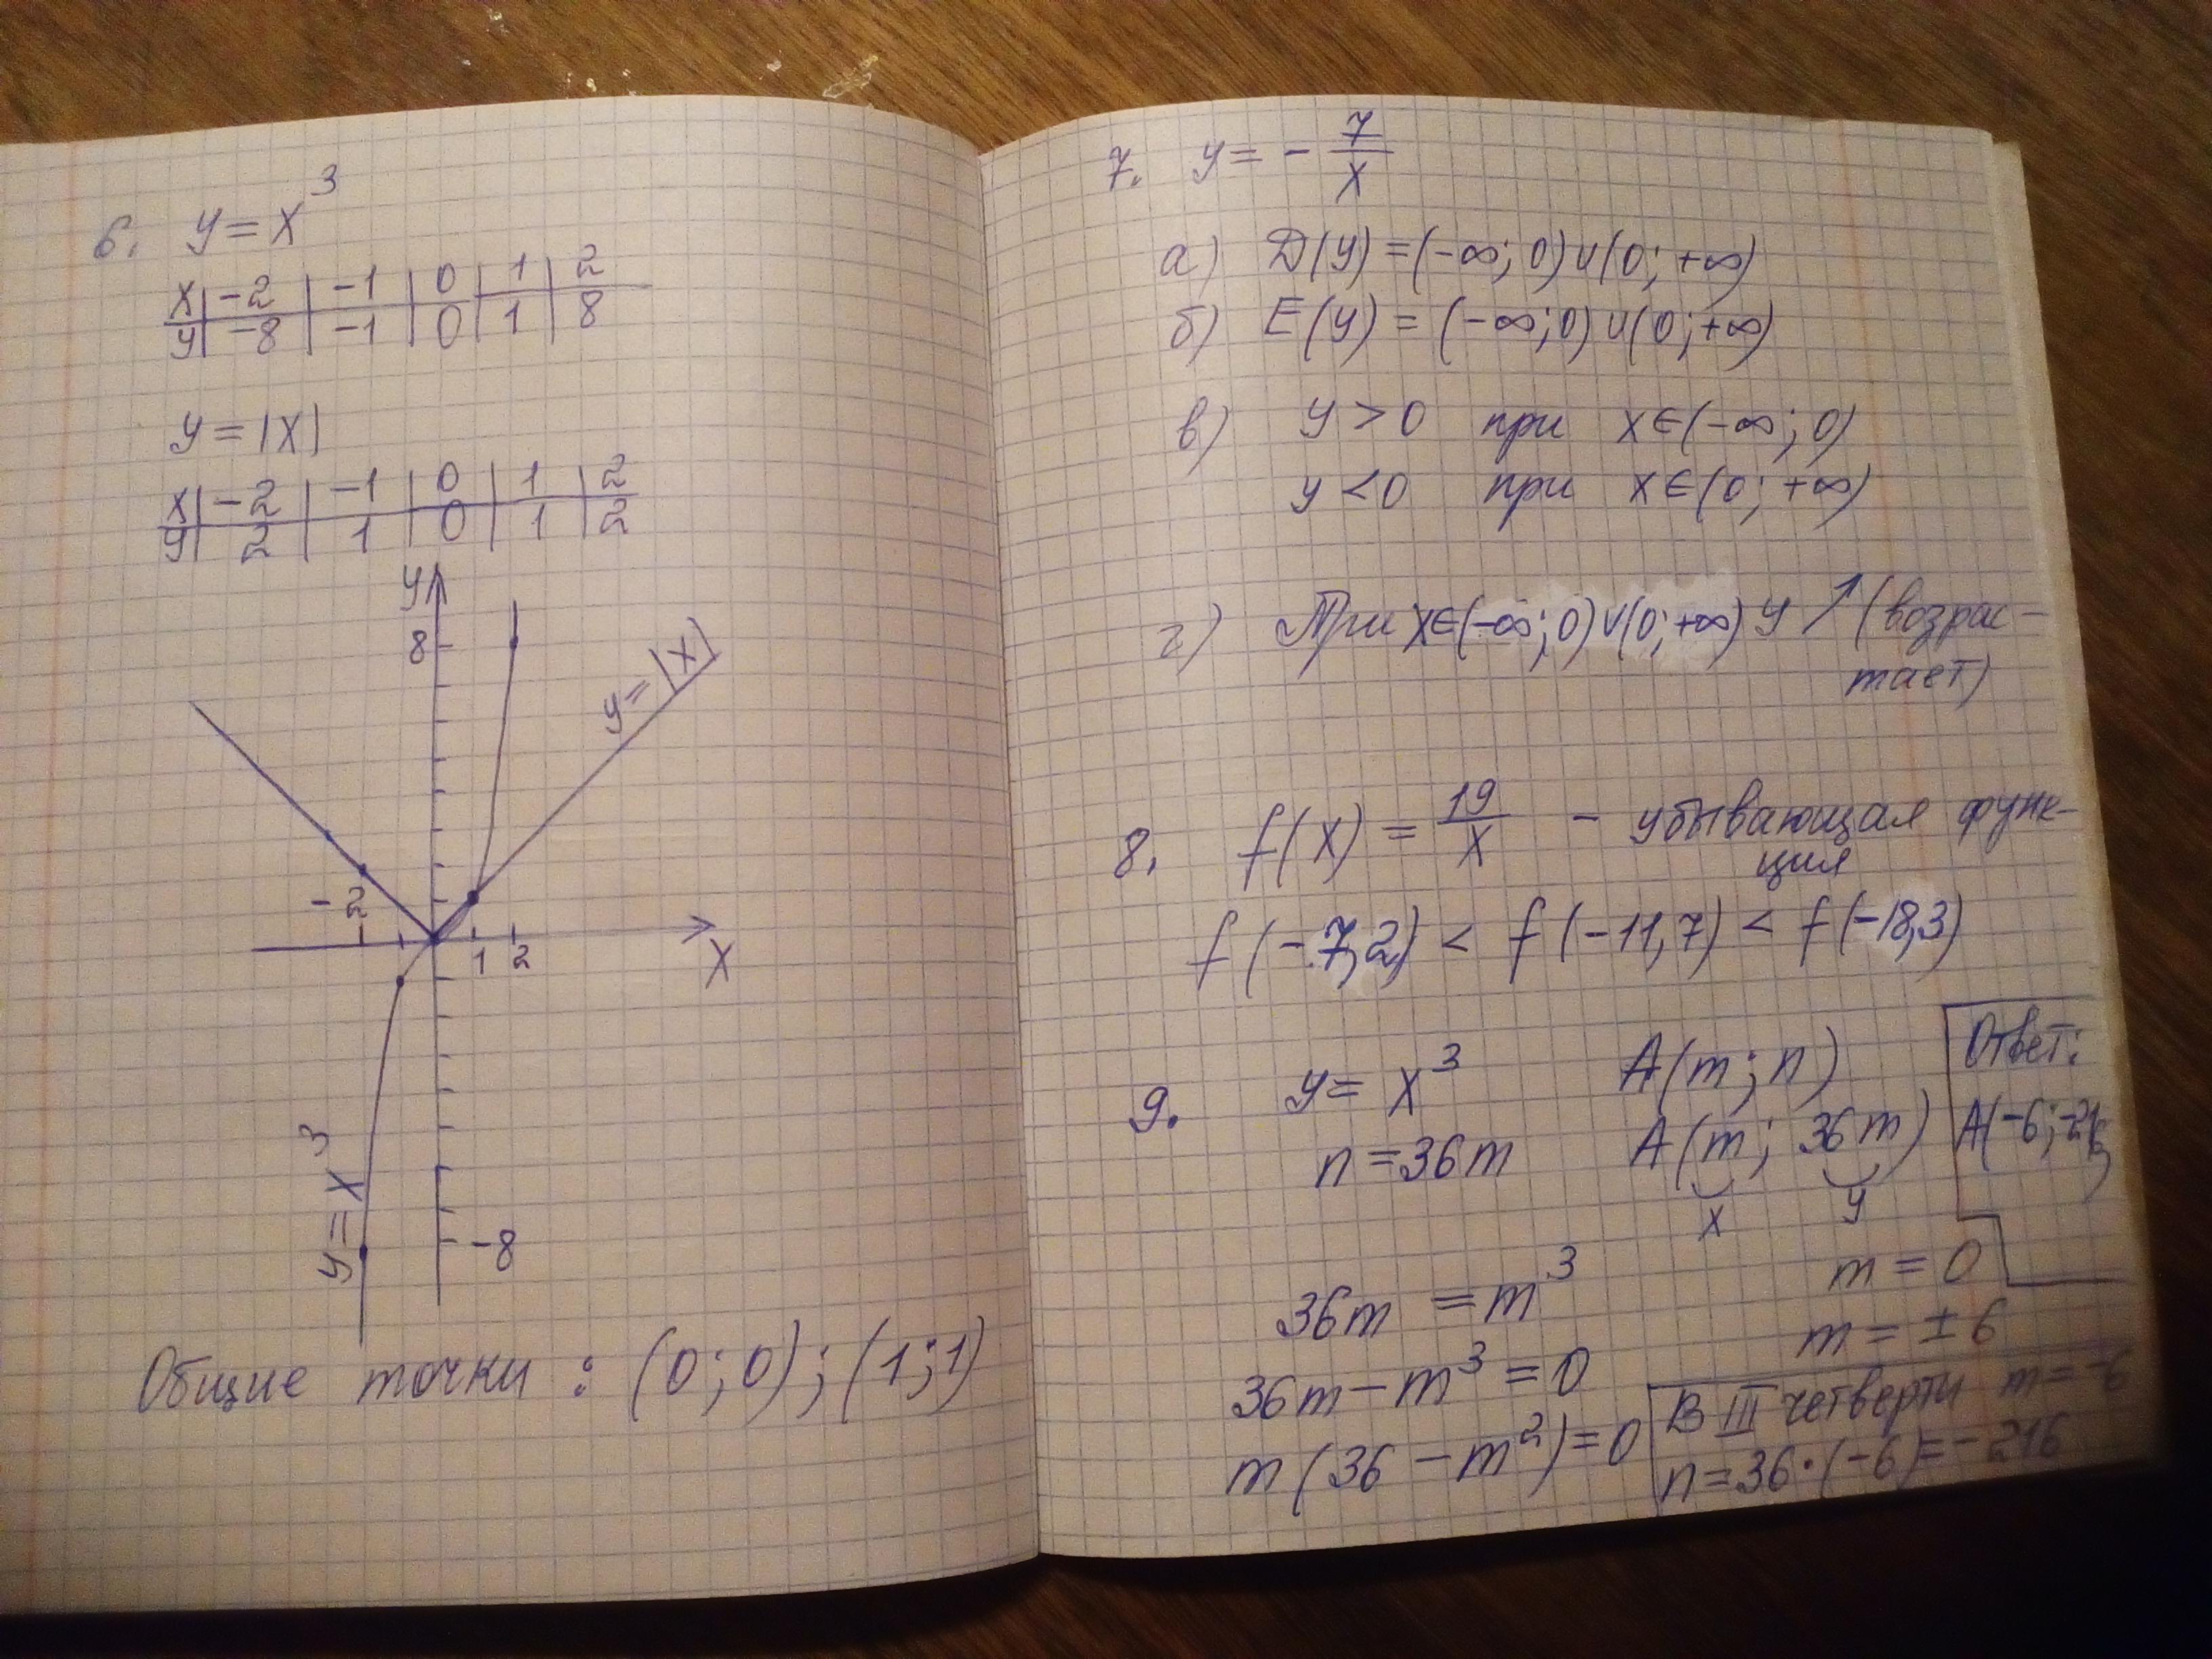 6. y = x³
x | -2 | -1 | 0 | 1 | 2
y | -8 | -1 | 0 | 1 | 8
y = |x|
x | -2 | -1 | 0 | 1 | 2
y | 2 | 1 | 0 | 1 | 2
y
8
y = |x|
-2
1 2
x
y = x³
-8
Общие точки : (0; 0); (1; 1)
7. y = - 7/x
а) D(y) = (-∞; 0) ∪ (0; +∞)
б) E(y) = (-∞; 0) ∪ (0; +∞)
в) y > 0 при x ∈ (-∞; 0)
y < 0 при x ∈ (0; +∞)
г) При x ∈ (-∞; 0) ∪ (0; +∞) y ↗ (возрас-
тает)
8. f(x) = 19/x - убывающая функ-
ция
f(-7,2) < f(-11,7) < f(-18,3)
9. y = x³ A(m; n)
n = 36m A(m; 36m)
x y
Ответ:
A(-6; -216)
36m = m³
36m - m³ = 0
m(36 - m²) = 0
m = 0
m = ± 6
В III четверти m = -6
n = 36 · (-6) = -216